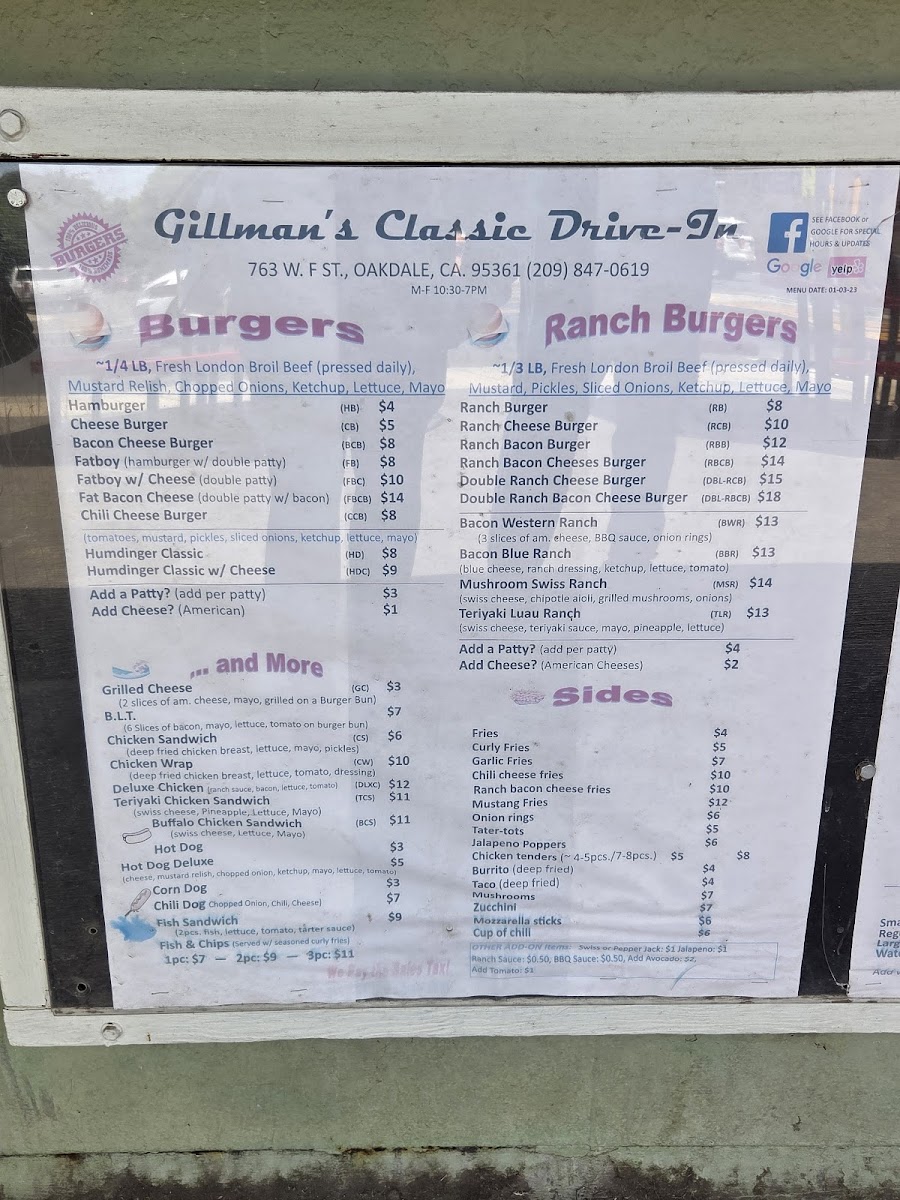 100% DELICIOUS
BURGERS
100% DELICIOUS
Gillman's Classic Drive-In
763 W. F ST., OAKDALE, CA. 95361 (209) 847-0619
M-F 10:30-7PM
SEE FACEBOOK or
GOOGLE FOR SPECIAL
HOURS & UPDATES
Google yelp
MENU DATE: 01-03-23
Burgers
~1/4 LB, Fresh London Broil Beef (pressed daily),
Mustard Relish, Chopped Onions, Ketchup, Lettuce, Mayo
Hamburger (HB) $4
Cheese Burger (CB) $5
Bacon Cheese Burger (BCB) $8
Fatboy (hamburger w/ double patty) (FB) $8
Fatboy w/ Cheese (double patty) (FBC) $10
Fat Bacon Cheese (double patty w/ bacon) (FBCB) $14
Chili Cheese Burger (CCB) $8
(tomatoes, mustard, pickles, sliced onions, ketchup, lettuce, mayo)
Humdinger Classic (HD) $8
Humdinger Classic w/ Cheese (HDC) $9
Add a Patty? (add per patty) $3
Add Cheese? (American) $1
... and More
Grilled Cheese (GC) $3
(2 slices of am. cheese, mayo, grilled on a Burger Bun)
B.L.T. $7
(6 Slices of bacon, mayo, lettuce, tomato on burger bun)
Chicken Sandwich (CS) $6
(deep fried chicken breast, lettuce, mayo, pickles)
Chicken Wrap (CW) $10
(deep fried chicken breast, lettuce, tomato, dressing)
Deluxe Chicken (ranch sauce, bacon, lettuce, tomato) (DLXC) $12
Teriyaki Chicken Sandwich (TCS) $11
(swiss cheese, Pineapple, Lettuce, Mayo)
Buffalo Chicken Sandwich (BCS) $11
(swiss cheese, Lettuce, Mayo)
Hot Dog $3
Hot Dog Deluxe $5
(cheese, mustard relish, chopped onion, ketchup, mayo, lettuce, tomato)
Corn Dog $3
Chili Dog Chopped Onion, Chili, Cheese) $7
Fish Sandwich $9
(2pcs. fish, lettuce, tomato, tarter sauce)
Fish & Chips (Served w/ seasoned curly fries)
1pc: $7 — 2pc: $9 — 3pc: $11
We Pay the Sales Tax!
Ranch Burgers
~1/3 LB, Fresh London Broil Beef (pressed daily),
Mustard, Pickles, Sliced Onions, Ketchup, Lettuce, Mayo
Ranch Burger (RB) $8
Ranch Cheese Burger (RCB) $10
Ranch Bacon Burger (RBB) $12
Ranch Bacon Cheeses Burger (RBCB) $14
Double Ranch Cheese Burger (DBL-RCB) $15
Double Ranch Bacon Cheese Burger (DBL-RBCB) $18
Bacon Western Ranch (BWR) $13
(3 slices of am. cheese, BBQ sauce, onion rings)
Bacon Blue Ranch (BBR) $13
(blue cheese, ranch dressing, ketchup, lettuce, tomato)
Mushroom Swiss Ranch (MSR) $14
(swiss cheese, chipotle aioli, grilled mushrooms, onions)
Teriyaki Luau Ranch (TLR) $13
(swiss cheese, teriyaki sauce, mayo, pineapple, lettuce)
Add a Patty? (add per patty) $4
Add Cheese? (American Cheeses) $2
Sides
Fries $4
Curly Fries $5
Garlic Fries $7
Chili cheese fries $10
Ranch bacon cheese fries $10
Mustang Fries $12
Onion rings $6
Tater-tots $5
Jalapeno Poppers $6
Chicken tenders (~ 4-5pcs./7-8pcs.) $5 $8
Burrito (deep fried) $4
Taco (deep fried) $4
Mushrooms $7
Zucchini $7
Mozzarella sticks $6
Cup of chili $6
OTHER ADD-ON Items: Swiss or Pepper Jack: $1 Jalapeno: $1
Ranch Sauce: $0.50, BBQ Sauce: $0.50, Add Avocado: $2,
Add Tomato: $1
Sma
Reg
Larg
Wate
Add